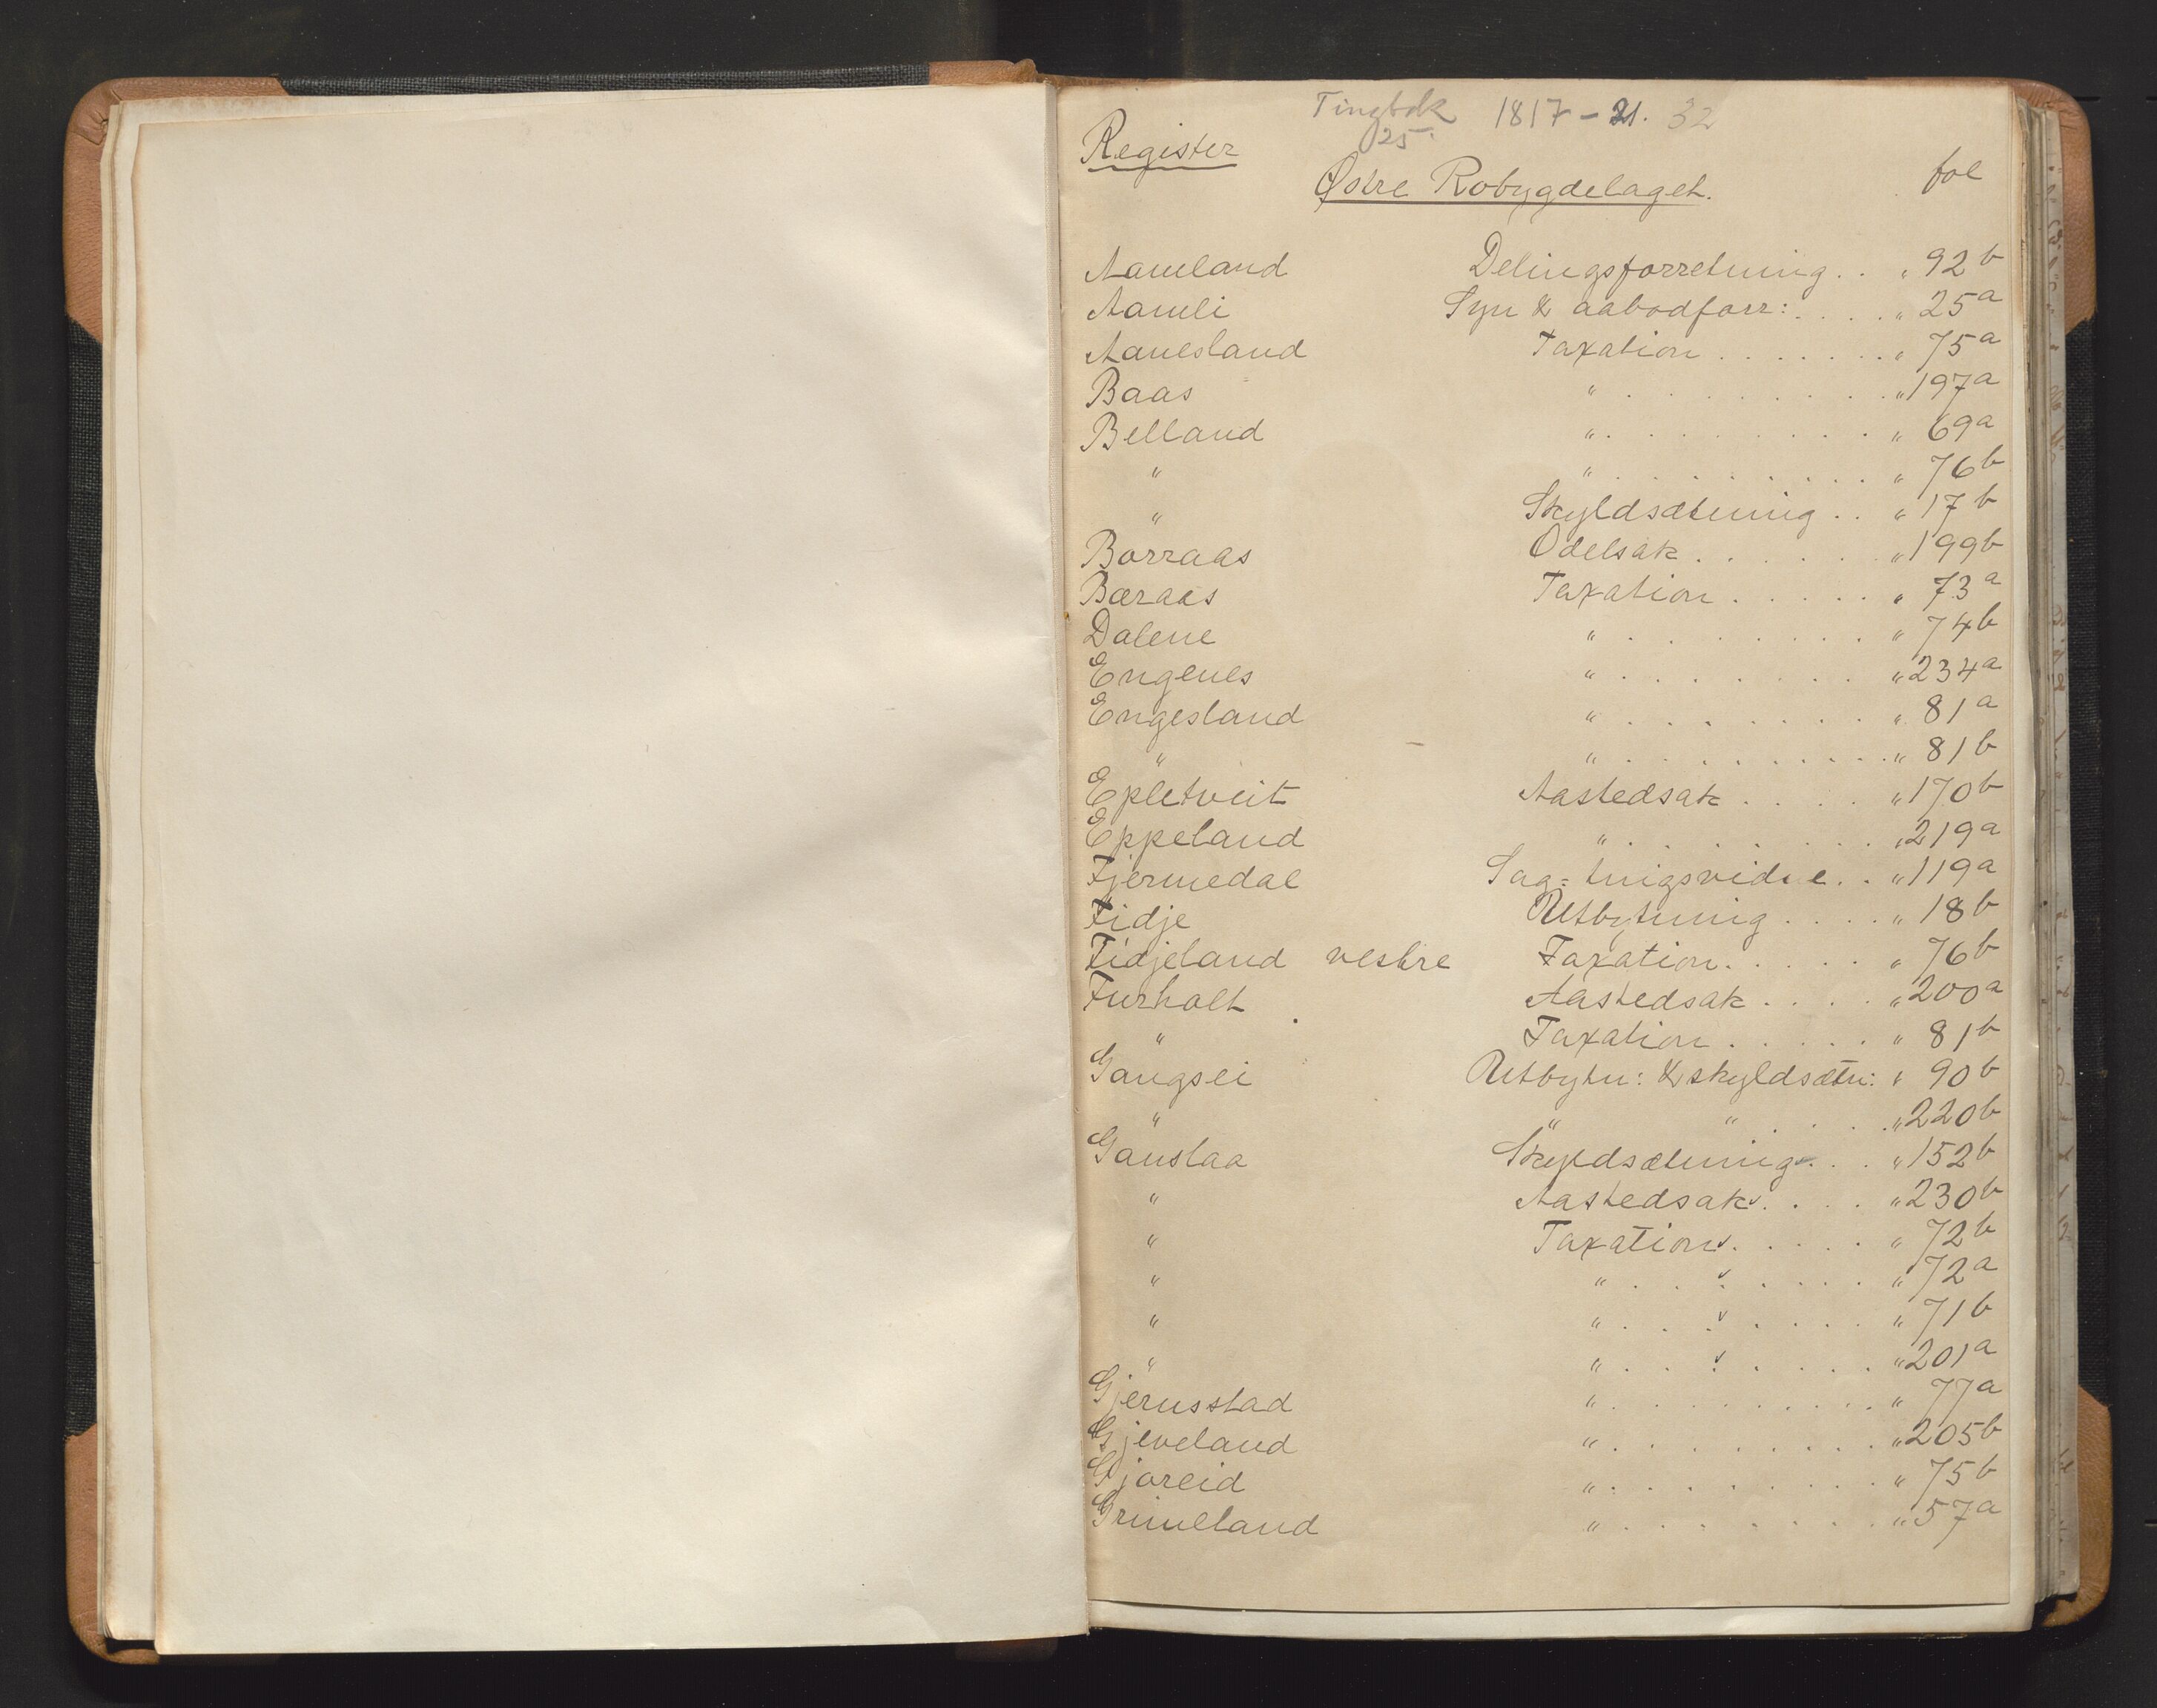 Tingbok 1817-21. 32
25.
Register
Østre Robygdelaget. fol
Aamland Delingsforretning . . " 92 b
Aamli Syn & aabodforr: . . . . " 25 a
Aanesland Taxation . . . . . . . " 75 a
Baas " . . . . . . . . . " 197 a
Belland " . . . . . . . . " 69 a
" " . . . . . . . . " 76 b
" Skyldsætning . . " 17 b
Borraas Odelsak . . . . . . " 199 b
Bæraas Taxation . . . . . " 73 a
Dalene " . . . . . . . . " 74 b
Engenes " . . . . . . . " 234 a
Engesland " . . . . . . . . " 81 a
" " . . . . . . . . . " 81 b
Epletveit Aastedsak . . . . " 170 b
Eppeland " . . . . . . . . " 219 a
Fjermedal Sag= tingsvidne . . " 119 a
Fidje Utbytning . . . . " 18 b
Fidjeland vestre Taxation . . . . . " 76 b
Furholt Aastedsak . . . . " 200 a
" Taxation . . . . . " 81 b
Gangsei Utbytn: & skyldsætn: " 90 b
" " " . . . . " 220 b
Ganslaa Skyldsætning . . . " 152 b
" Aastedsak . . . . " 230 b
" Taxation . . . . . " 72 b
" " . . . . . . . " 72 a
" " . . . . . . . " 71 b
" " . . . . . . . " 201 a
Gjerusstad " . . . . . . . . . " 77 a
Gjeveland " . . . . . . . . " 205 b
Gjoreid " . . . . . . . . . " 75 b
Grimeland " . . . . . . . . " 57 a